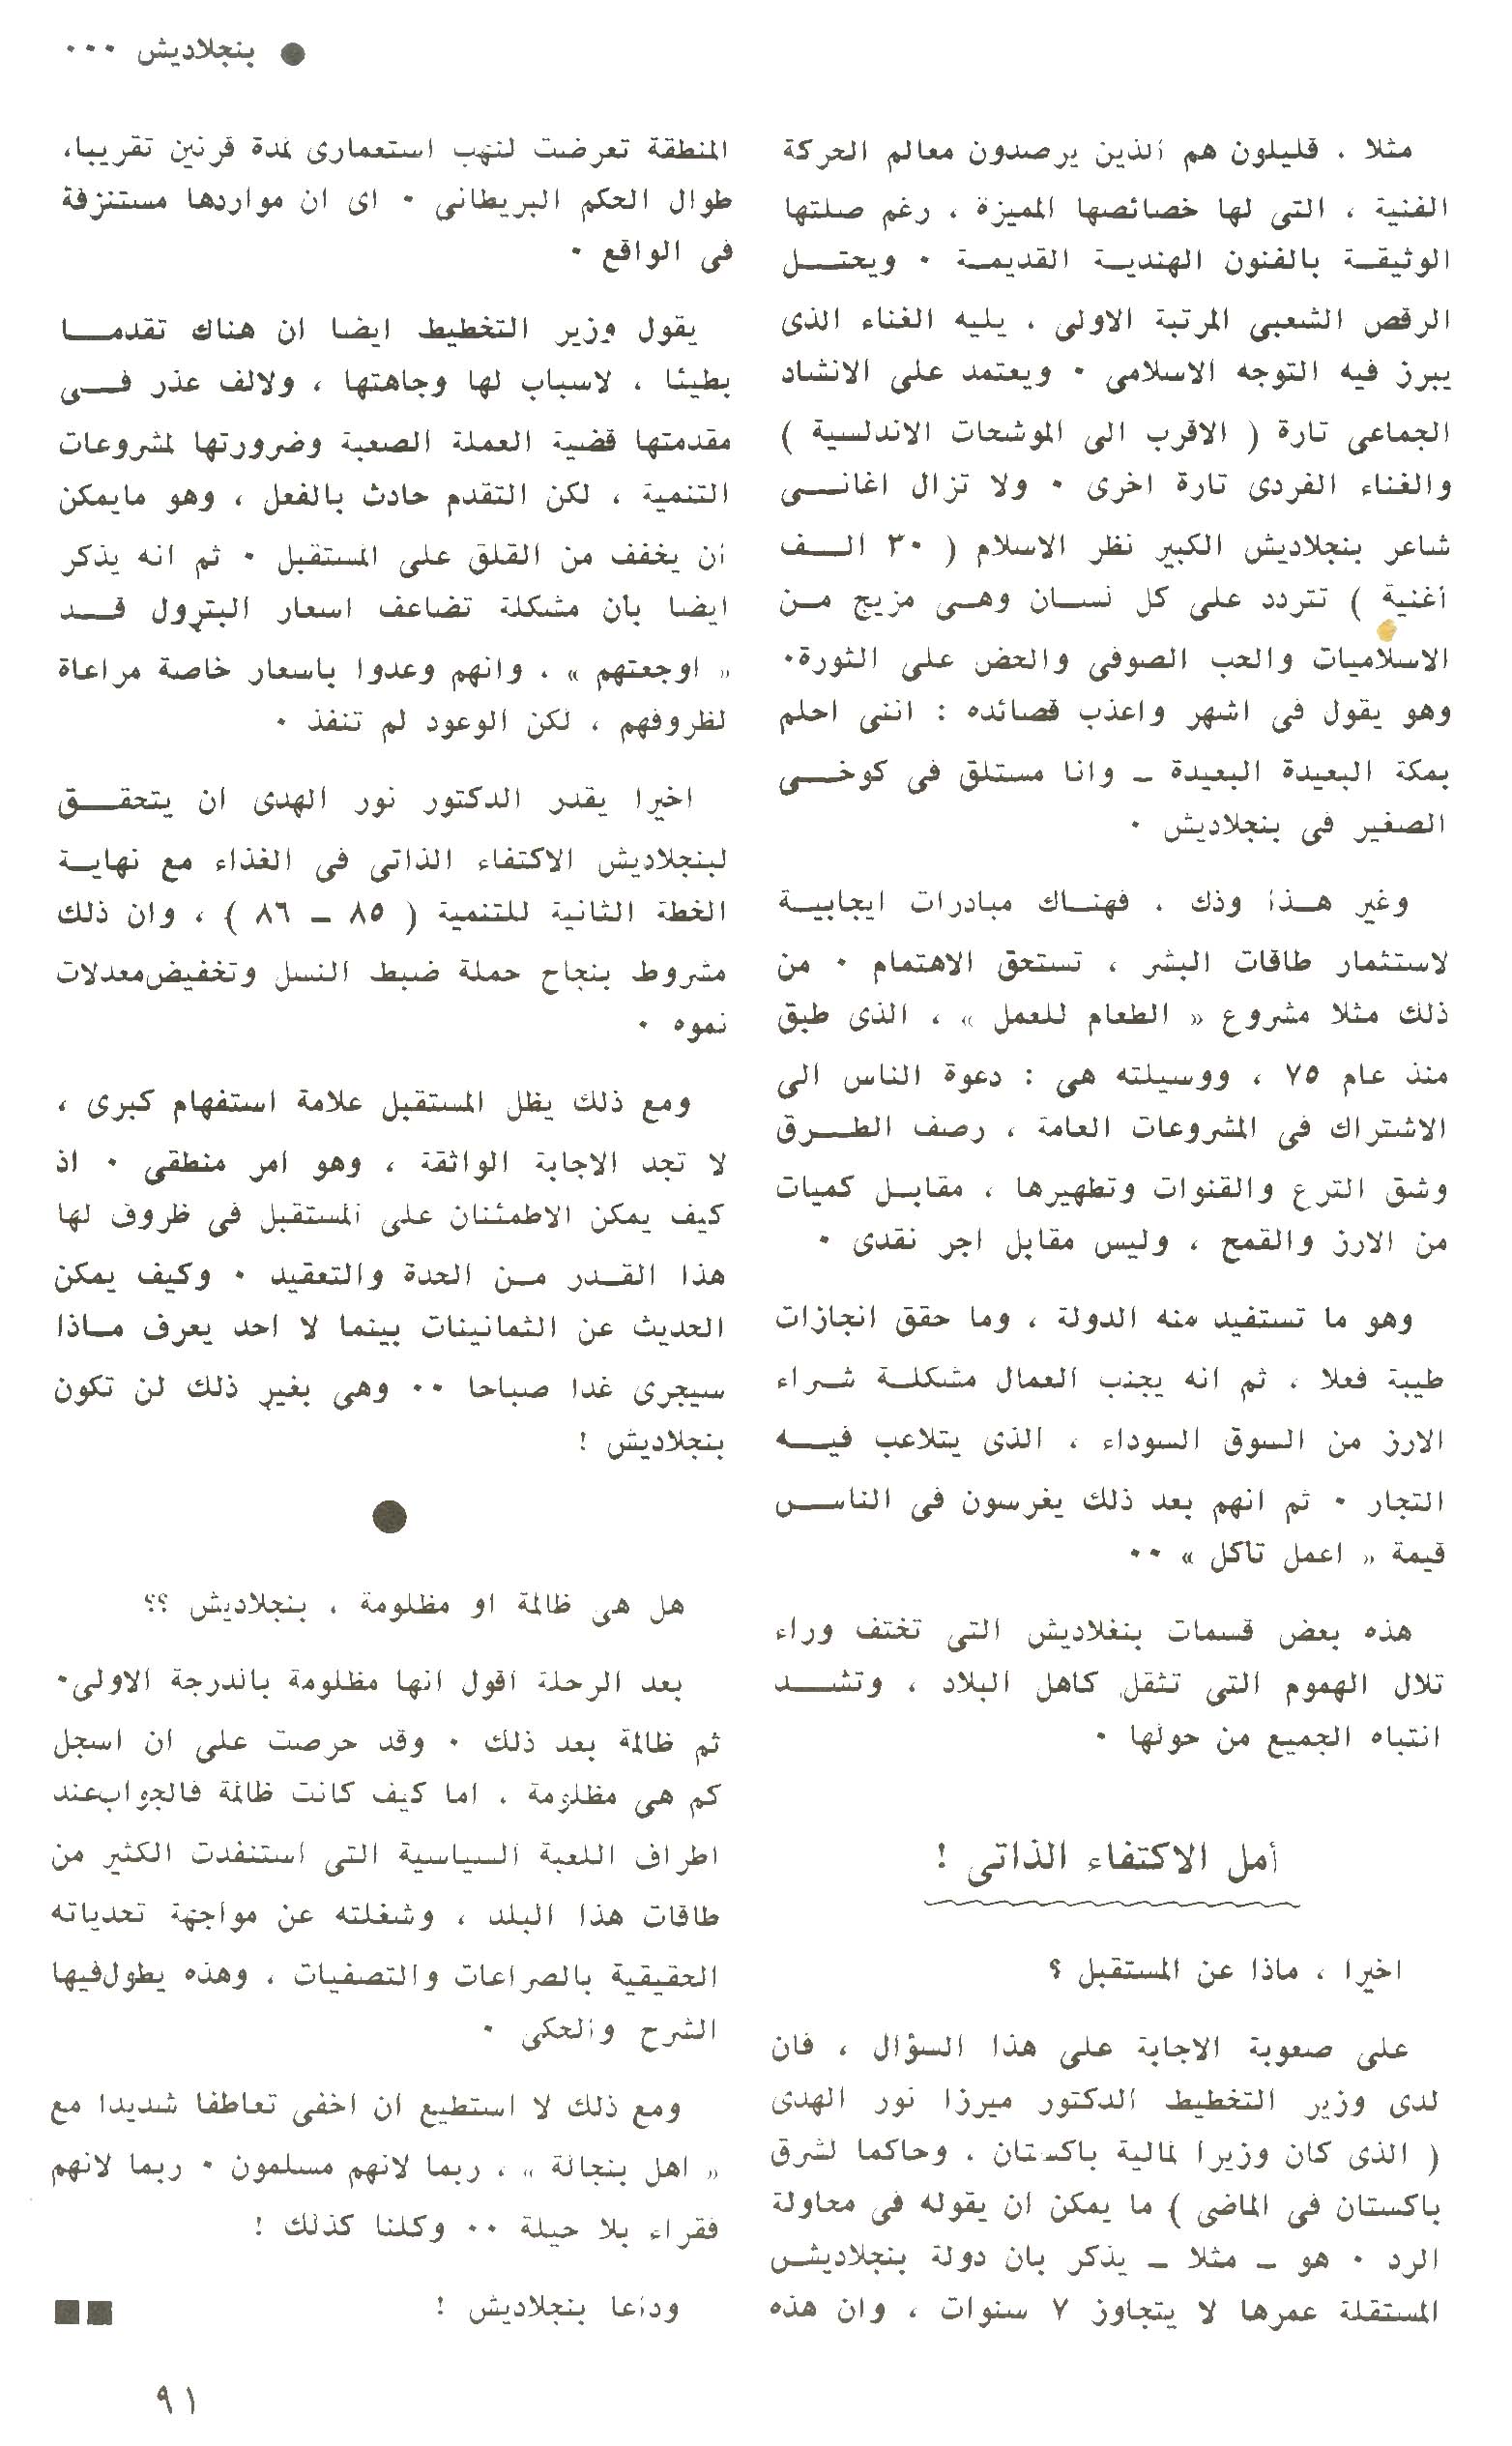 ● بنجلاديش ٠٠٠
مثلا ، قليلون هم الذين يرصدون معالم الحركة
الفنية ، التى لها خصائصها المميزة ، رغم صلتها
الوثيقة بالفنون الهندية القديمة ٠ ويحتل
الرقص الشعبى المرتبة الاولى ، يليه الغناء الذى
يبرز فيه التوجه الاسلامى ٠ ويعتمد على الانشاد
الجماعى تارة ( الاقرب الى الموشحات الاندلسية )
والغناء الفردى تارة اخرى ٠ ولا تزال اغانى
شاعر بنجلاديش الكبير نظر الاسلام ( ٣٠ الف
أغنية ) تتردد على كل لسان وهى مزيج من
الاسلاميات والحب الصوفى والحض على الثورة٠
وهو يقول فى اشهر واعذب قصائده : اننى احلم
بمكة البعيدة البعيدة ـ وانا مستلق فى كوخى
الصغير فى بنجلاديش ٠
وغير هذا وذك ، فهناك مبادرات ايجابية
لاستثمار طاقات البشر ، تستحق الاهتمام ٠ من
ذلك مثلا مشروع « الطعام للعمل » ، الذى طبق
منذ عام ٧٥ ، ووسيلته هى : دعوة الناس الى
الاشتراك فى المشروعات العامة ، رصف الطرق
وشق الترع والقنوات وتطهيرها ، مقابل كميات
من الارز والقمح ، وليس مقابل اجر نقدى ٠
وهو ما تستفيد منه الدولة ، وما حقق انجازات
طيبة فعلا ، ثم انه يجنب العمال مشكلة شراء
الارز من السوق السوداء ، الذى يتلاعب فيه
التجار ٠ ثم انهم بعد ذلك يغرسون فى الناس
قيمة « اعمل تأكل » ٠٠
هذه بعض قسمات بنغلاديش التى تختف وراء
تلال الهموم التى تثقل كاهل البلاد ، وتشد
انتباه الجميع من حولها ٠
أمل الاكتفاء الذاتى !
اخيرا ، ماذا عن المستقبل ؟
على صعوبة الاجابة على هذا السؤال ، فان
لدى وزير التخطيط الدكتور ميرزا نور الهدى
( الذى كان وزيرا لمالية باكستان ، وحاكما لشرق
باكستان فى الماضى ) ما يمكن ان يقوله فى محاولة
الرد ٠ هو ـ مثلا ـ يذكر بان دولة بنجلاديش
المستقلة عمرها لا يتجاوز ٧ سنوات ، وان هذه
المنطقة تعرضت لنهب استعمارى لمدة قرنين تقريبا،
طوال الحكم البريطانى ٠ اى ان مواردها مستنزفة
فى الواقع ٠
يقول وزير التخطيط ايضا ان هناك تقدما
بطيئا ، لاسباب لها وجاهتها ، ولالف عذر فى
مقدمتها قضية العملة الصعبة وضرورتها لمشروعات
التنمية ، لكن التقدم حادث بالفعل ، وهو مايمكن
أن يخفف من القلق على المستقبل ٠ ثم انه يذكر
ايضا بأن مشكلة تضاعف اسعار البترول قد
« اوجعتهم » ، وانهم وعدوا باسعار خاصة مراعاة
لظروفهم ، لكن الوعود لم تنفذ ٠
اخيرا يقدر الدكتور نور الهدى ان يتحقق
لبنجلاديش الاكتفاء الذاتى فى الغذاء مع نهاية
الخطة الثانية للتنمية ( ٨٥ ـ ٨٦ ) ، وان ذلك
مشروط بنجاح حملة ضبط النسل وتخفيض معدلات
نموه ٠
ومع ذلك يظل المستقبل علامة استفهام كبرى ،
لا تجد الاجابة الواثقة ، وهو امر منطقى ٠ اذ
كيف يمكن الاطمئنان على المستقبل فى ظروف لها
هذا القدر من الحدة والتعقيد ٠ وكيف يمكن
الحديث عن الثمانينات بينما لا احد يعرف ماذا
سيجرى غدا صباحا ٠٠ وهى بغير ذلك لن تكون
بنجلاديش !
●
هل هى ظالمة او مظلومة ، بنجلاديش ؟؟
بعد الرحلة أقول انها مظلومة بالدرجة الاولى٠
ثم ظالمة بعد ذلك ٠ وقد حرصت على ان اسجل
كم هى مظلومة ، اما كيف كانت ظالمة فالجواب عند
اطراف اللعبة السياسية التى استنفدت الكثير من
طاقات هذا البلد ، وشغلته عن مواجهة تحدياته
الحقيقية بالصراعات والتصفيات ، وهذه يطول فيها
الشرح والحكى ٠
ومع ذلك لا استطيع ان اخفى تعاطفا شديدا مع
« اهل بنجالة » ، ربما لانهم مسلمون ٠ ربما لانهم
فقراء بلا حيلة ٠٠ وكلنا كذلك !
وداعا بنجلاديش ! ■■
٩١